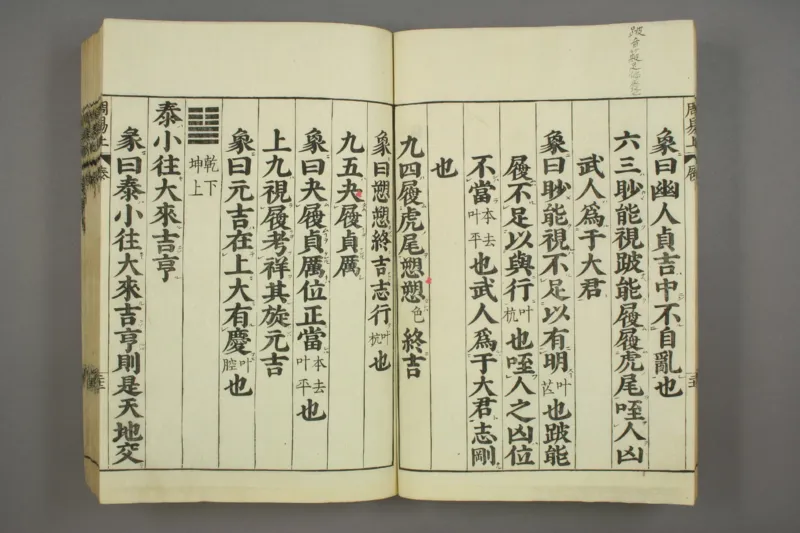 周易上
履
象曰幽人貞吉中不自亂也
六三眇能視跛能履履虎尾咥人凶
武人爲于大君
象曰眇能視不足以有明叶芒也跛能
履不足以與行叶杭也咥人之凶位
不當本去叶平也武人爲于大君志剛
也
九四履虎尾愬愬色終吉
象曰愬愬終吉志行叶杭也
九五夬履貞厲
象曰夬履貞厲位正當本去叶平也
上九視履考祥其旋元吉
象曰元吉在上大有慶叶腔也
乾下坤上
泰小往大來吉亨
彖曰泰小往大來吉亨則是天地交
周易上
泰